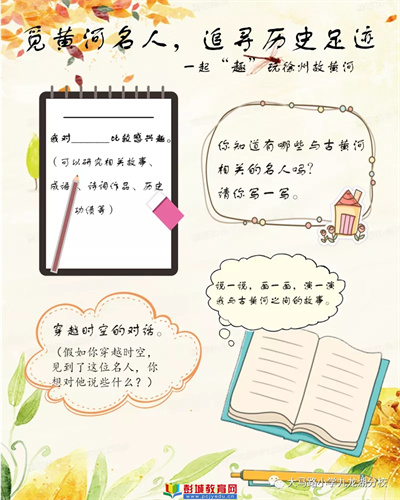 觅黄河名人，追寻历史足迹
一起“趣”玩徐州故黄河
我对______比较感兴趣。
（可以研究相关故事、
成语、诗词作品、历史
功绩等）
你知道有哪些与古黄河
相关的名人吗？
请你写一写。
说一说，画一画，演一演
我与古黄河之间的故事。
穿越时空的对话。
（假如你穿越时空，
见到了这位名人，你
想对他说些什么？）
彭城教育网
www.pcjyedu.cn
大马路小学九龙湖分校